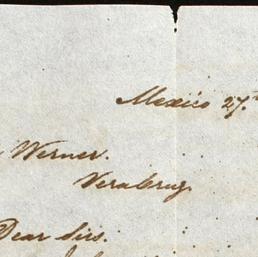 Mexico 27.
Werner.
Veracruz.
Dear Sirs.